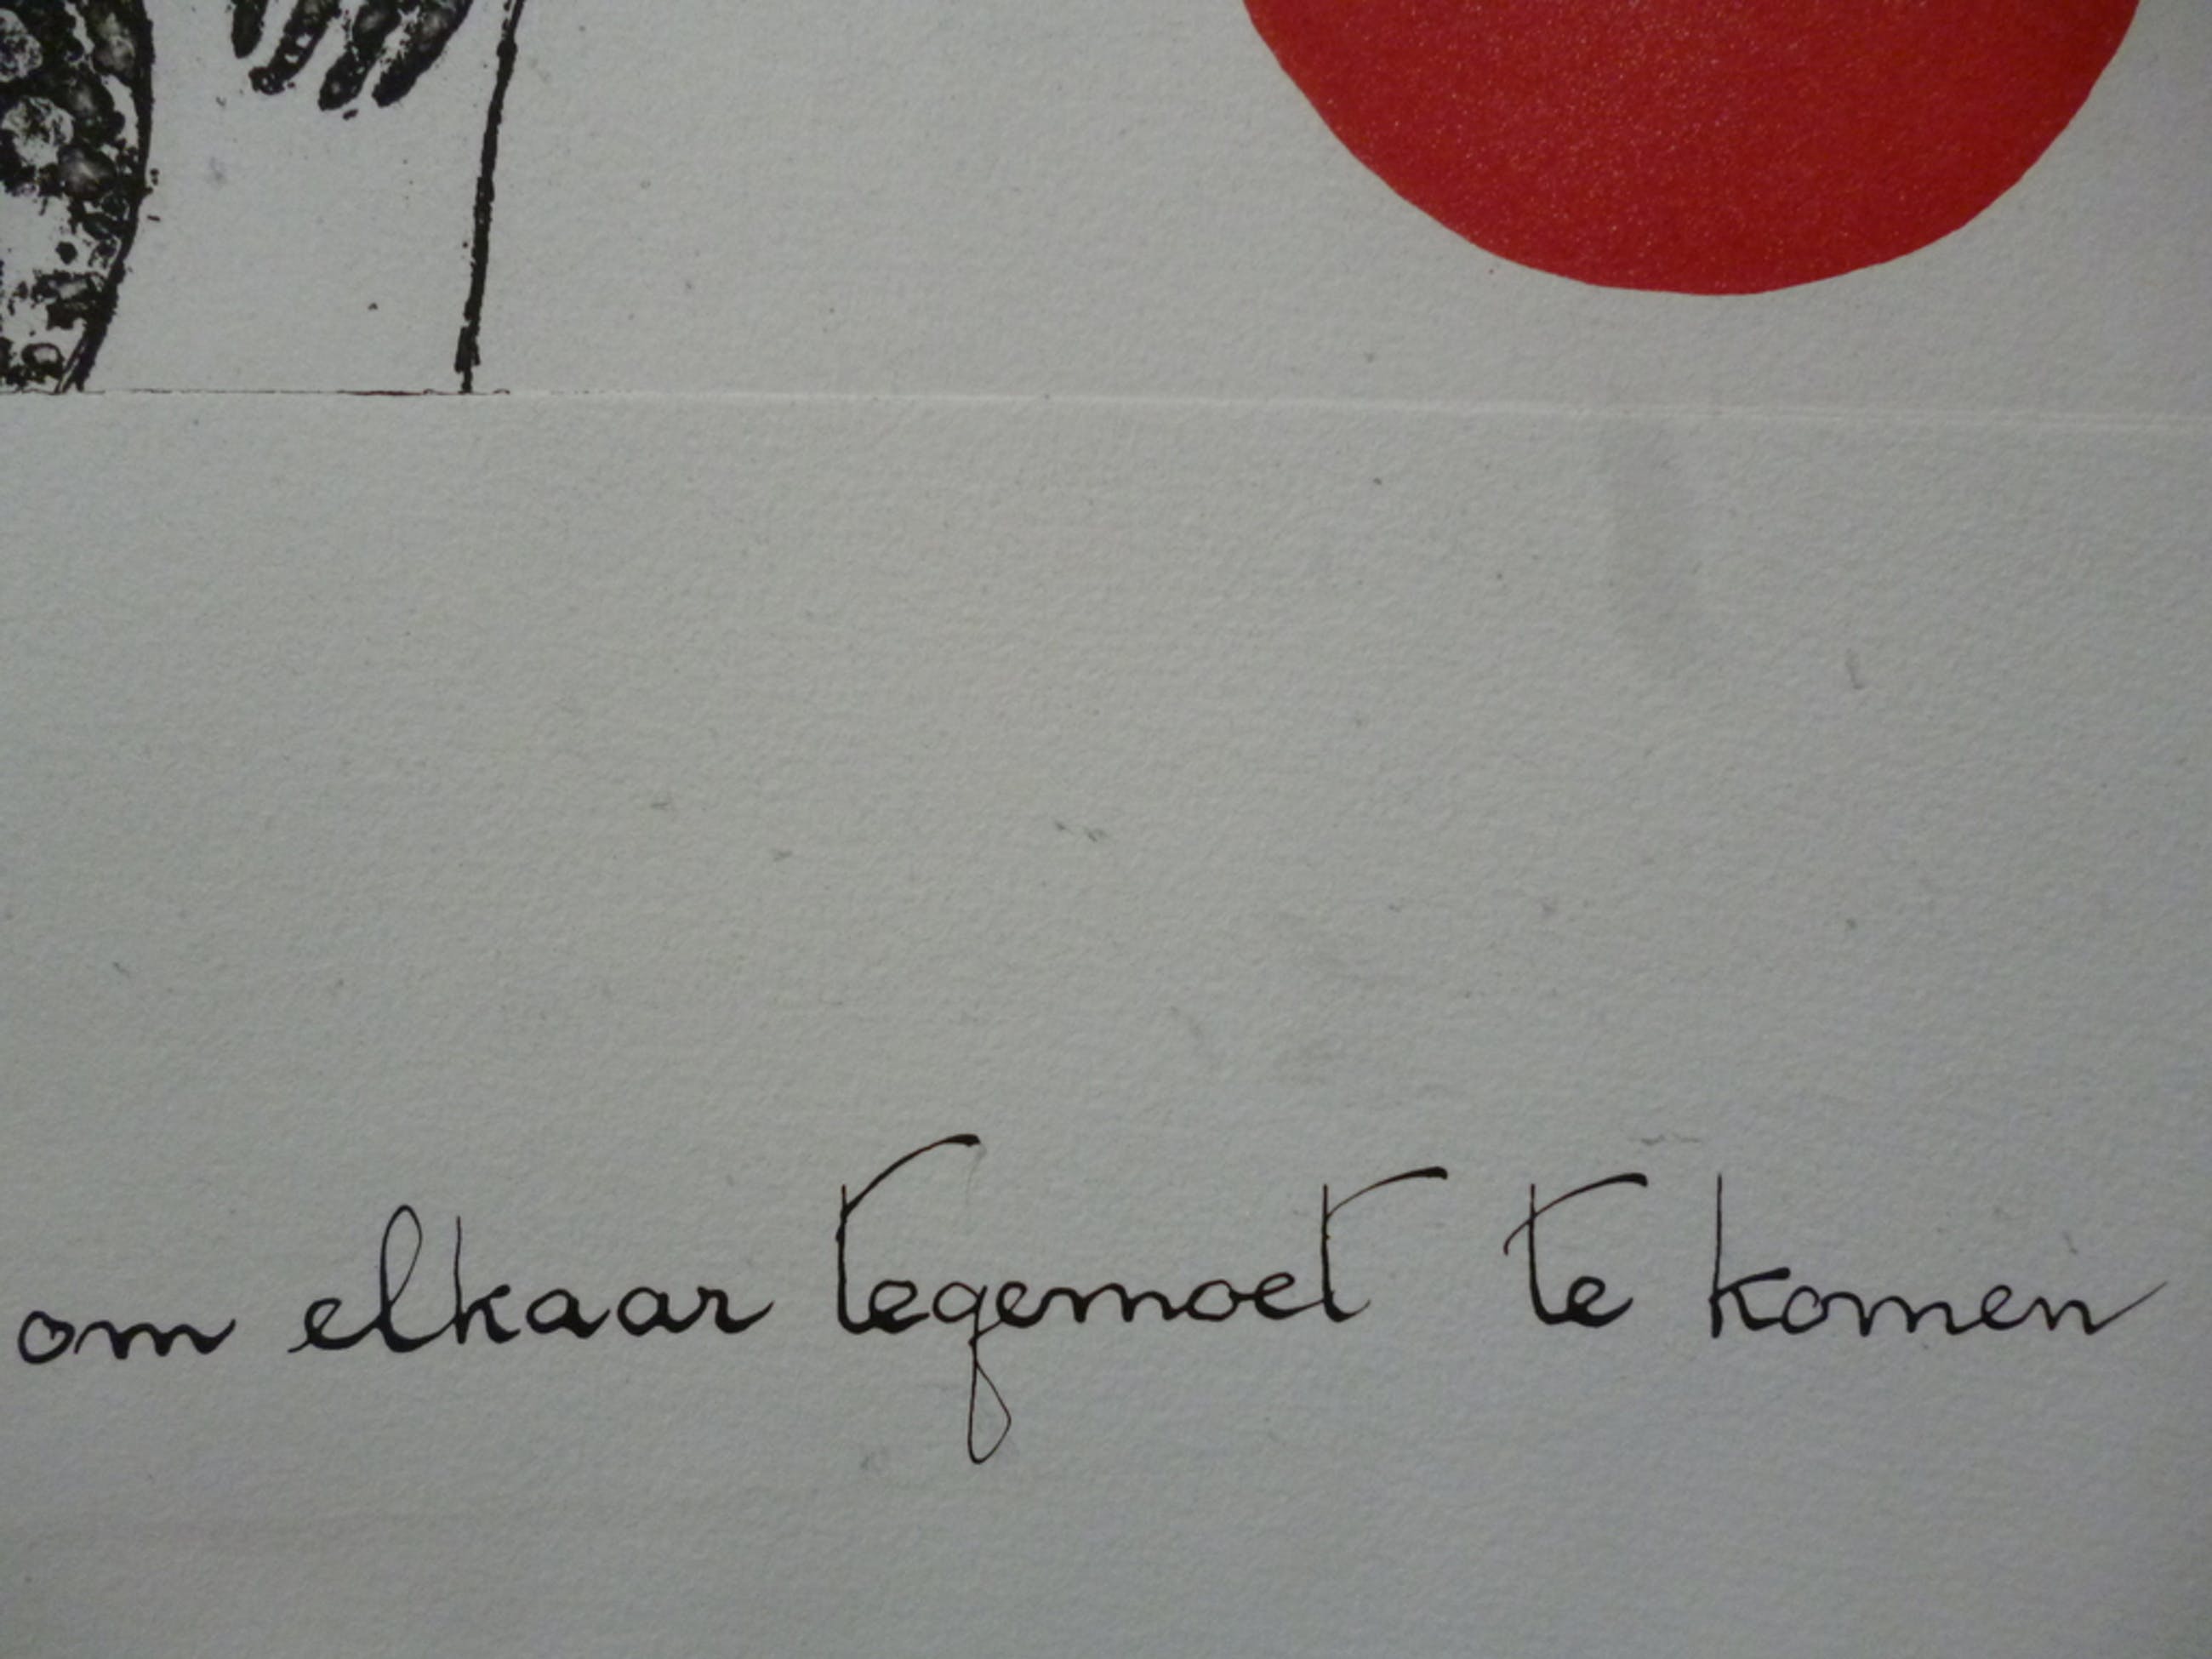 om elkaar tegemoet te komen